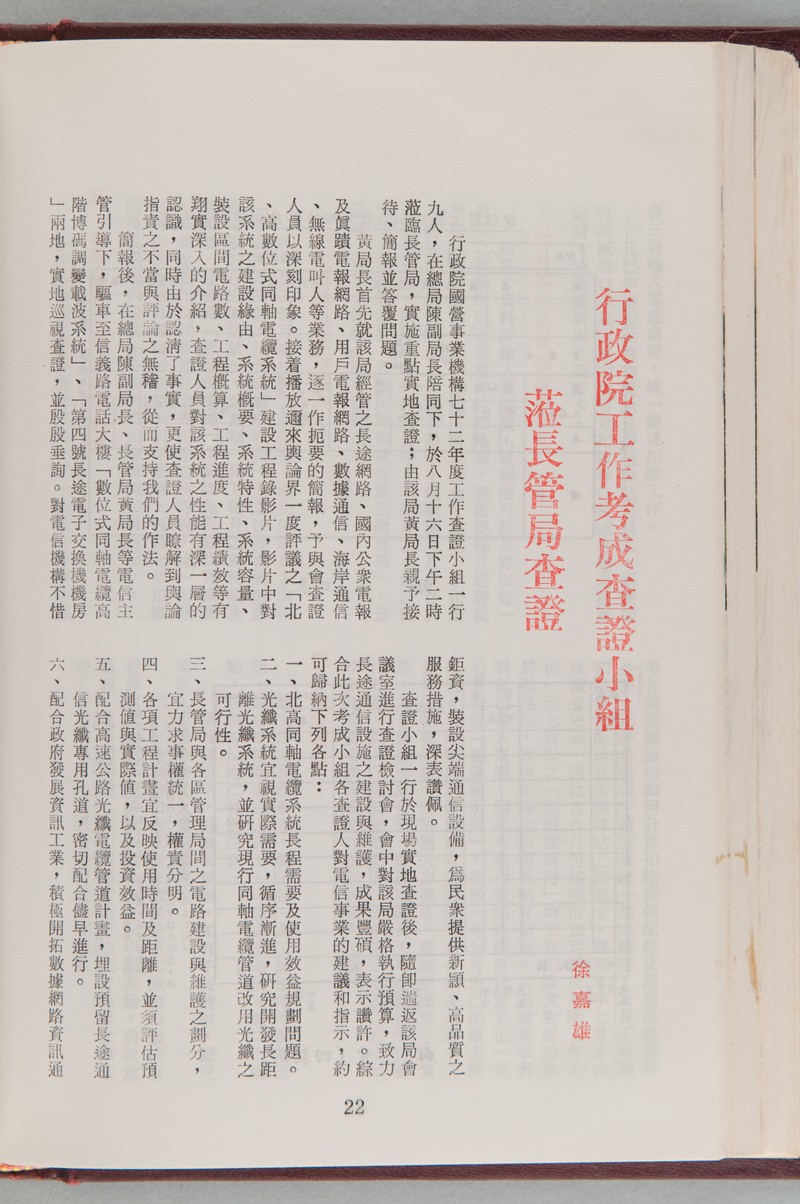 行政院工作考成查證小組
蒞長管局查證
徐嘉雄
行政院國營事業機構七十二年度工作查證小組一行
九人，在總局陳副局長陪同下，於八月十六日下午二時
蒞臨長管局，實施重點實地查證；由該局黃局長親予接
待、簡報並答覆問題。
黃局長首先就該局經管之長途網路、國內公衆電報
及眞蹟電報網路、用戶電報網路、數據通信、海岸通信
、無線電叫人等業務，逐一作扼要的簡報，予與會查證
人員以深刻印象。接着播放邇來輿論界一度評議之「北
、高數位式同軸電纜系統」建設工程錄影片，影片中對
該系統之建設緣由、系統概要、系統特性、系統容量、
裝設區間電路數、工程槪算、工程進度、工程績效等有
翔實深入的介紹，查證人員對該系統之性能有深一層的
認識，同時由於認淸了事實，更使查證人員瞭解到輿論
指責之不當與評論之無稽，從而支持我們的作法。
簡報後，在總局陳副局長、長管局黃局長等電信主
管引導下，驅車至信義路電話大樓「數位式同軸電纜高
階博碼調變載波系統」、「第四號長途電子交換機機房
」兩地，實地巡視查證，並殷殷垂詢。對電信機構不惜
鉅資，裝設尖端通信設備，爲民衆提供新穎、高品質之
服務措施，深表讚佩。
查證小組一行於現場實地查證後，隨卽遄返該局會
議室進行查證檢討會，會中對該局嚴格執行預算，致力
長途通信設施之建設與維護，成果豐碩，表示讚許。綜
合此次考成小組各查證人對電信事業的建議和指示，約
可歸納下列各點：
一、北高同軸電纜系統長程需要及使用效益規劃問題。
二、光纖系統宜視實際需要，循序漸進，研究開發長距
離光纖系統，並研究現行同軸電纜管道改用光纖之
可行性。
三、長管局與各區管理局間之電路建設與維護之劃分，
宜力求事權統一，權責分明。
四、各項工程計畫宜反映使用時間及距離，並須評估預
測値與實際値，以及投資效益。
五、配合高速公路光纖電纜管道計畫，埋設預留長途通
信光纖專用孔道，密切配合儘早進行。
六、配合政府發展資訊工業，積極開拓數據網路資訊通
22